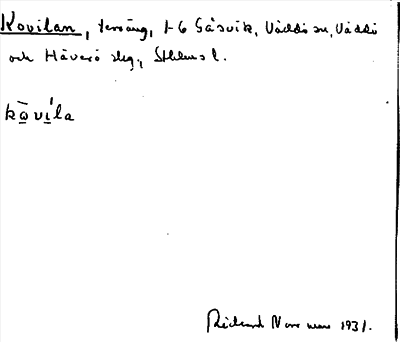 Kovilan, teräng, 1-6 Gåsvik, Väddö sn, Väddö
och Häverö slg, Sthlms l.
kōvi̍la
Rickard Norrman 1931.